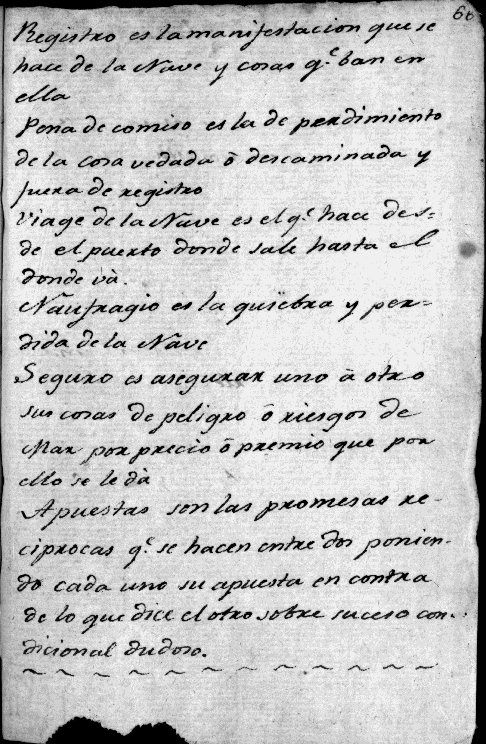 60
Registro es la manifestacion que se
hace de la Nave y cosas q.e ban en
ella
Pena de comiso es la de perdimiento
de la cosa vedada ô descaminada y
fuera de registro
Viage de la Nave es el q.e hace des=
de el puerto donde sale hasta el
donde và.
Naufragio es la quiebra y per=
dida de la Nave
Seguro es asegurar uno â otro
sus cosas de peligro ô riesgos de
Mar por precio ô premio que por
ello se le dà
Apuestas son las promesas re=
ciprocas q.e se hacen entre dos ponien-
do cada uno su apuesta en contra
de lo que dice el otro sobre suceso con-
dicional dudoso.